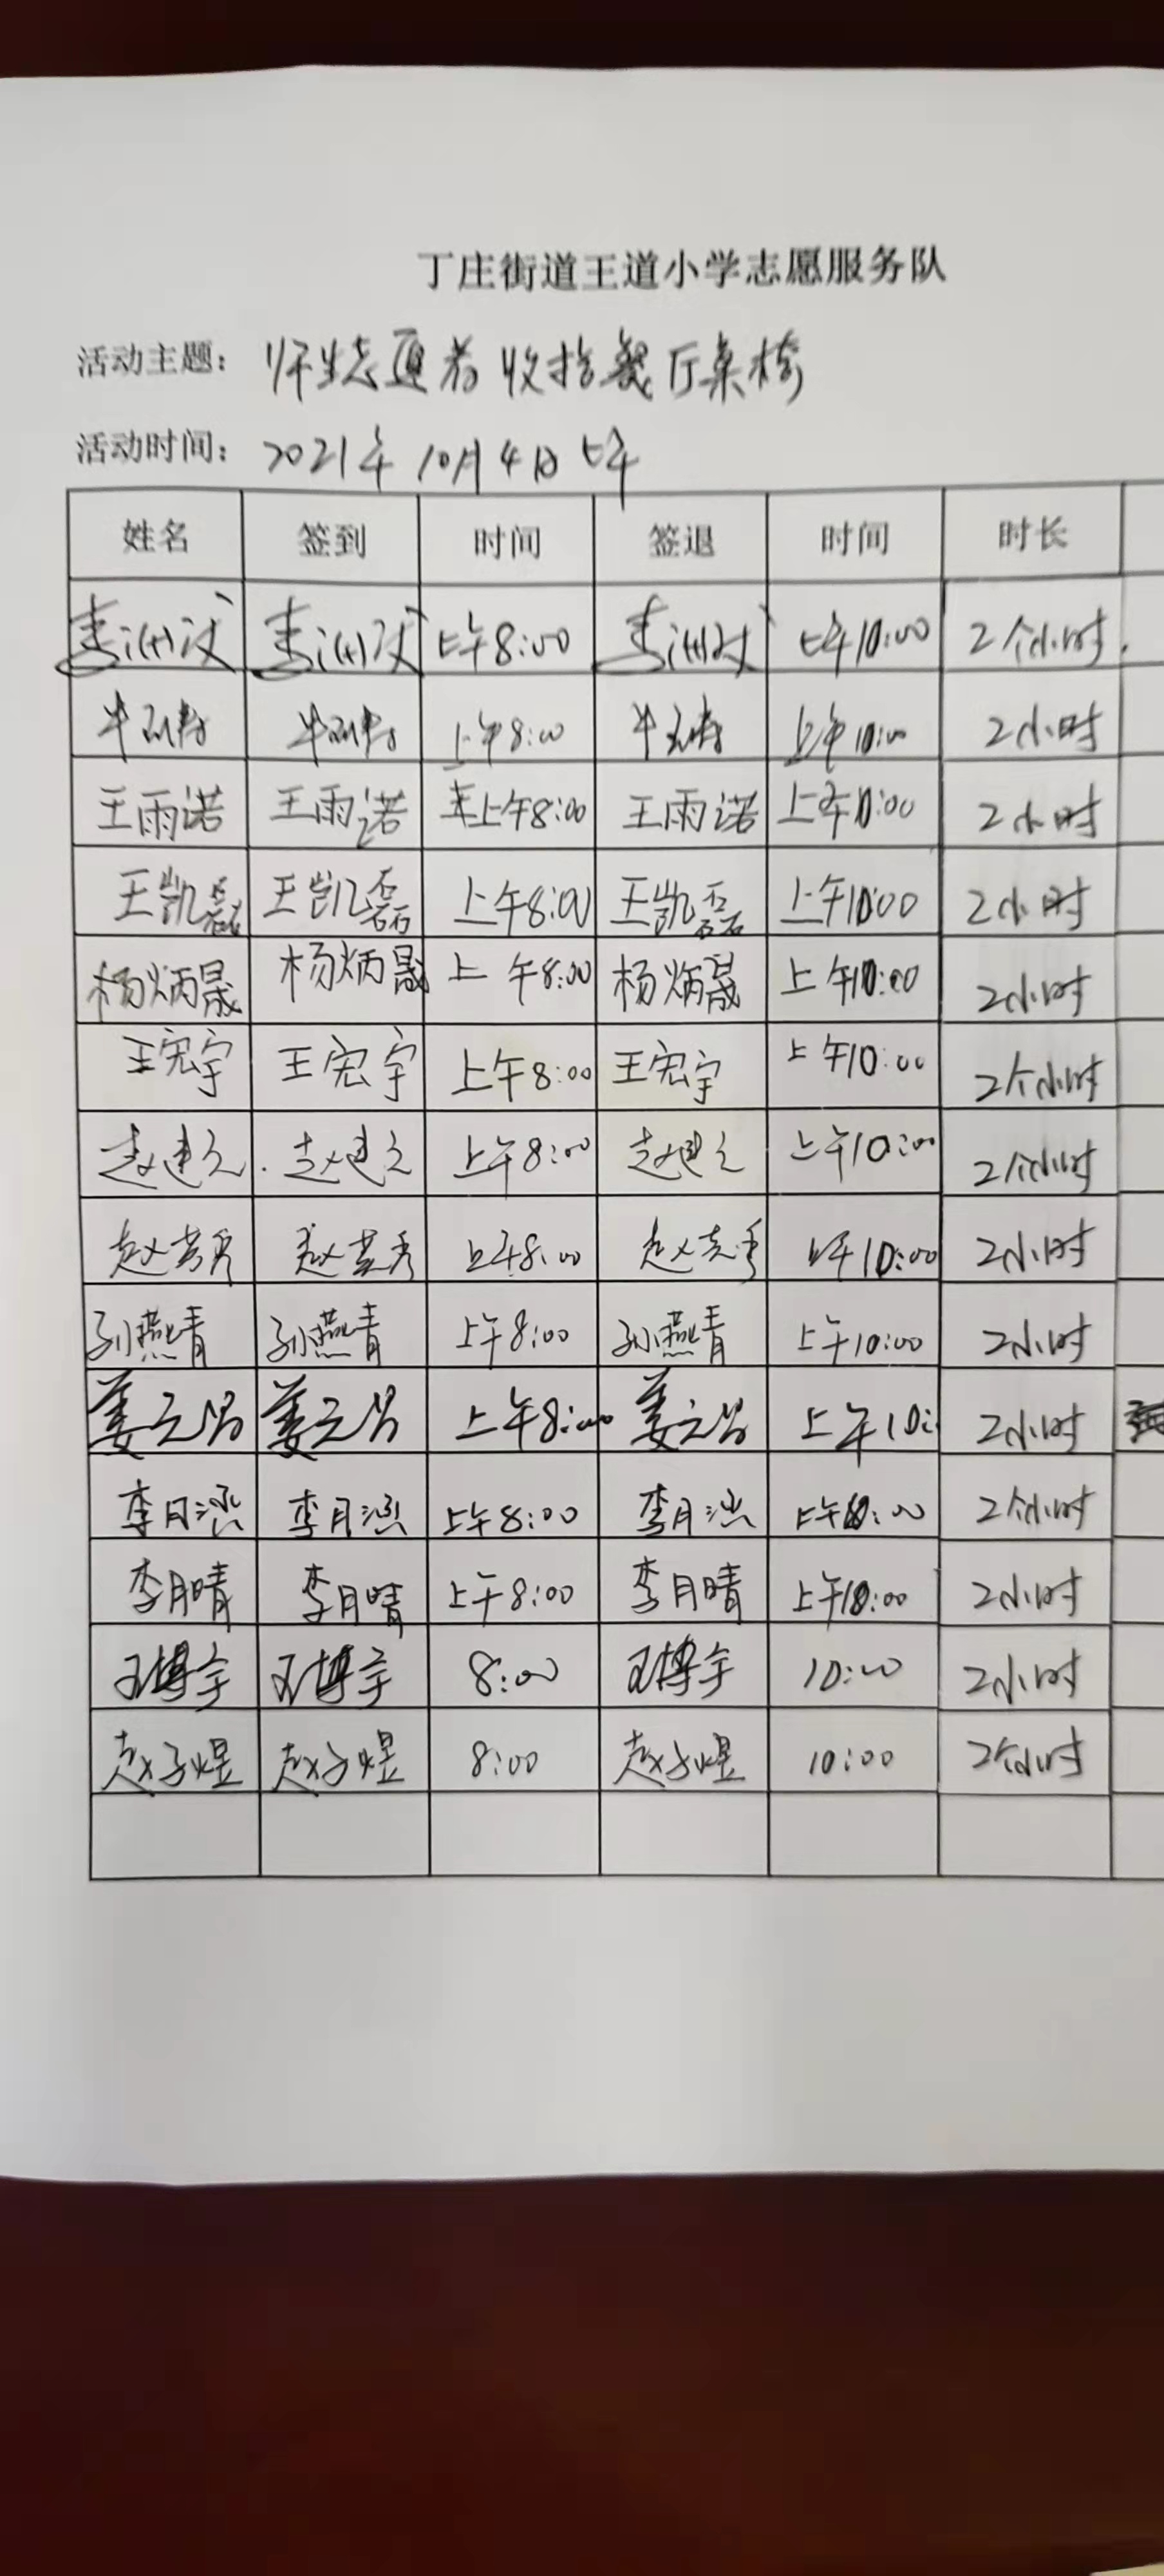 丁庄街道王道小学志愿服务队
活动主题：师生志愿者收拾餐厅桌椅
活动时间：2021年10月4日上午
姓名 签到 时间 签退 时间 时长
上午8:00 上午10:00 2个小时.
牛 牛 上午8:00 牛 上午10:00 2小时
王雨诺 王雨诺 上午8:00 王雨诺 上午10:00 2小时
王凯磊 王凯磊 上午8:00 王凯磊 上午10:00 2小时
杨炳晟 杨炳晟 上午8:00 杨炳晟 上午10:00 2小时
王宏宇 王宏宇 上午8:00 王宏宇 上午10:00 2个小时
赵建之 赵建之 上午8:00 赵建之 上午10:00 2个小时
赵芸秀 赵芸秀 上午8:00 赵芸秀 上午10:00 2小时
孙燕青 孙燕青 上午8:00 孙燕青 上午10:00 2小时
姜元昌 姜元昌 上午8:00 姜元昌 上午10: 2小时
李月涵 李月涵 上午8:00 李月涵 上午10:00 2个小时
李月晴 李月晴 上午8:00 李月晴 上午10:00 2小时
王博宇 王博宇 8:00 王博宇 10:00 2小时
赵子煜 赵子煜 8:00 赵子煜 10:00 2个小时